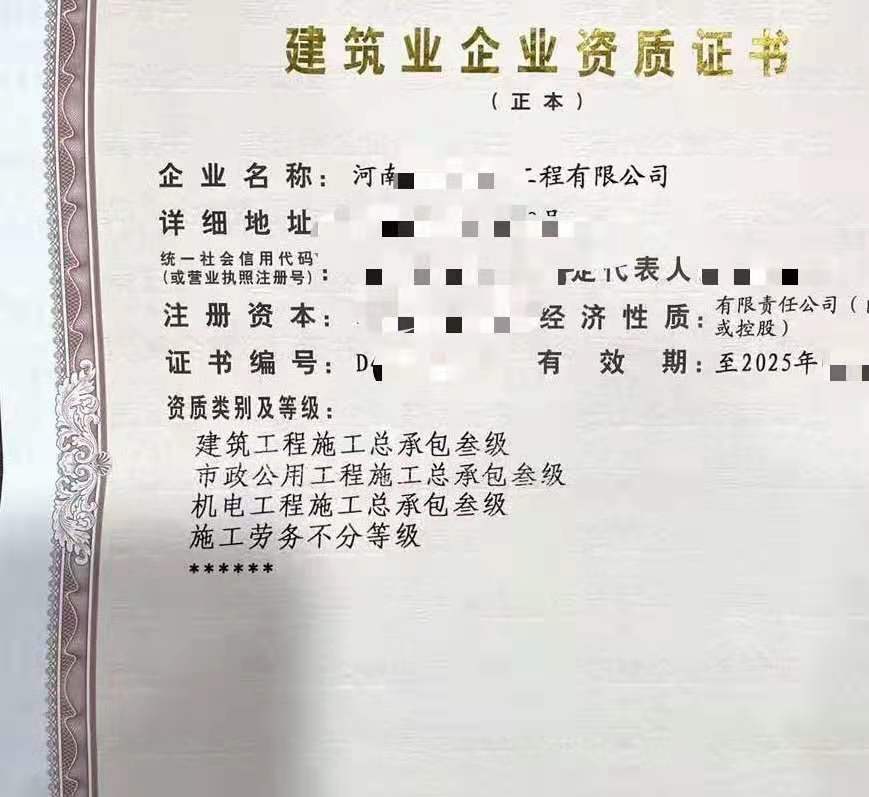 建筑业企业资质证书
（正本）
企业名称：河南 工程有限公司
详细地址
统一社会信用代码
（或营业执照注册号）： 定代表人
注册资本： 经济性质：有限责任公司（
或控股）
证书编号：D 有效期：至2025年
资质类别及等级：
建筑工程施工总承包叁级
市政公用工程施工总承包叁级
机电工程施工总承包叁级
施工劳务不分等级
******